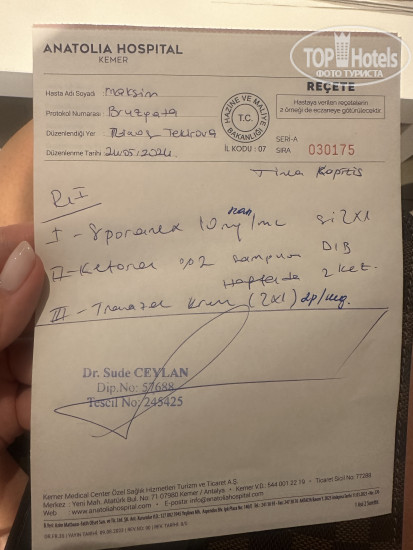 ANATOLIA HOSPITAL
KEMER
TOPHotels
ФОТО ТУРИСТА
REÇETE
Hasta Adı Soyadı : maksim
Hastaya verilen reçetelerin
2 örneği de eczaneye götürülecektir.
Protokol Numarası :
Düzenlendiği Yer : Tekirova
Düzenlenme Tarihi : 24.05.2024
HAZİNE VE MALİYE
T.C.
BAKANLIĞI
İL KODU : 07
SERİ-A
SIRA 030175
Tinea Kapitis
I - Sporanex 10 mg/mL 2x1
II - Ketoral %2 şampuan
Haftada 2 kez.
III - Travazol Krem (2x1)
Dr. Sude CEYLAN
Dip.No: 57688
Tescil No: 245425
Kemer Medical Center Özel Sağlık Hizmetleri Turizm ve Ticaret A.Ş.
Merkez : Yeni Mah. Atatürk Bul. No: 71 07980 Kemer / Antalya • Kemer V.D. 544 001 22 19 • Ticaret Sicil No: 77288
Web : www.anatoliahospital.com • E-posta : info@anatoliahospital.com